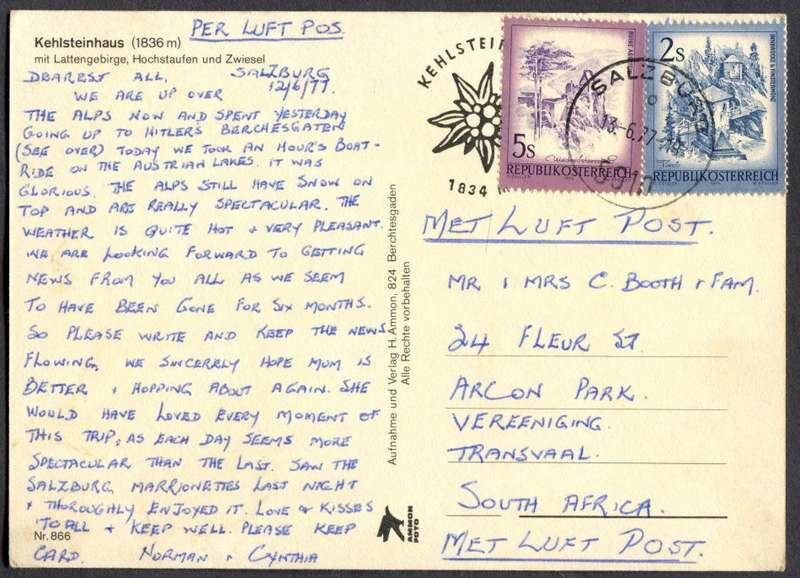 PER LUFT POS.
Kehlsteinhaus (1836 m)
mit Lattengebirge, Hochstaufen und Zwiesel
DEAREST ALL, SALZBURG
12/6/77.
WE ARE UP OVER
THE ALPS NOW AND SPENT YESTERDAY
GOING UP TO HITLER'S BERCHESGATEN
(SEE OVER) TODAY WE TOOK AN HOUR'S BOAT-
RIDE ON THE AUSTRIAN LAKES. IT WAS
GLORIOUS. THE ALPS STILL HAVE SNOW ON
TOP AND ARE REALLY SPECTACULAR. THE
WEATHER IS QUITE HOT + VERY PLEASANT.
WE ARE LOOKING FORWARD TO GETTING
NEWS FROM YOU ALL AS WE SEEM
TO HAVE BEEN GONE FOR SIX MONTHS.
SO PLEASE WRITE AND KEEP THE NEWS
FLOWING. WE SINCERELY HOPE MUM IS
BETTER + HOPPING ABOUT AGAIN. SHE
WOULD HAVE LOVED EVERY MOMENT OF
THIS TRIP, AS EACH DAY SEEMS MORE
SPECTACULAR THAN THE LAST. SAW THE
SALZBURG MARRIONETTES LAST NIGHT
+ THOROUGHLY ENJOYED IT. LOVE + KISSES
TO ALL + KEEP WELL. PLEASE KEEP
CARD. NORMAN + CYNTHIA
Nr. 866
Aufnahme und Verlag H. Ammon, 824 Berchtesgaden
Alle Rechte vorbehalten
AMMON
FOTO
KEHLSTEIN
1834
5s
REPUBLIK ÖSTERREICH
2s
REPUBLIK ÖSTERREICH
SALZBURG
13.-6.77-19
MET LUFT POST.
MR + MRS C. BOOTH + FAM.
24 FLEUR ST.
ARCON PARK.
VEREENIGING.
TRANSVAAL.
SOUTH AFRICA.
MET LUFT POST.